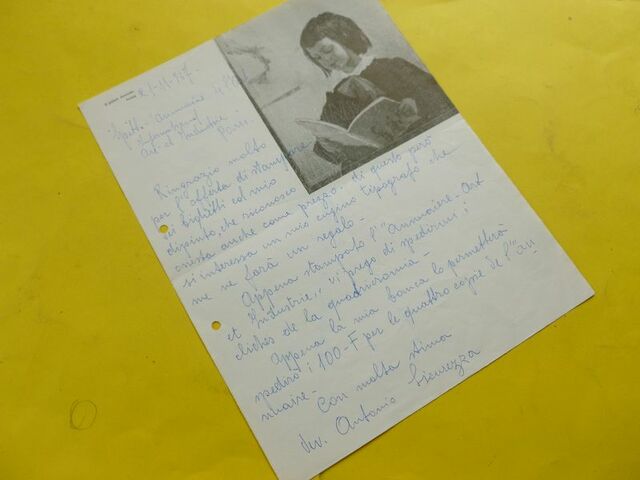 21-11-957.
Spett. Annuaire
International
Art et Industrie
Paris.
Ringrazio molto
per l'offerta di stampare
dei biglietti col mio
dipinto, che riconosco
onesta anche come prezzo. di questo però
si interessa un mio cugino tipografo che
me ne farà un regalo -
Appena stampato l'"Annuaire-Art
et Industrie," vi prego di spedirmi i
clichés de la quadricromia -
Appena la mia banca lo permetterà
spedirò i 100-F per le quattro copie de l'"an
nuaire -
Con molta stima
dev. Antonio Sicurezza